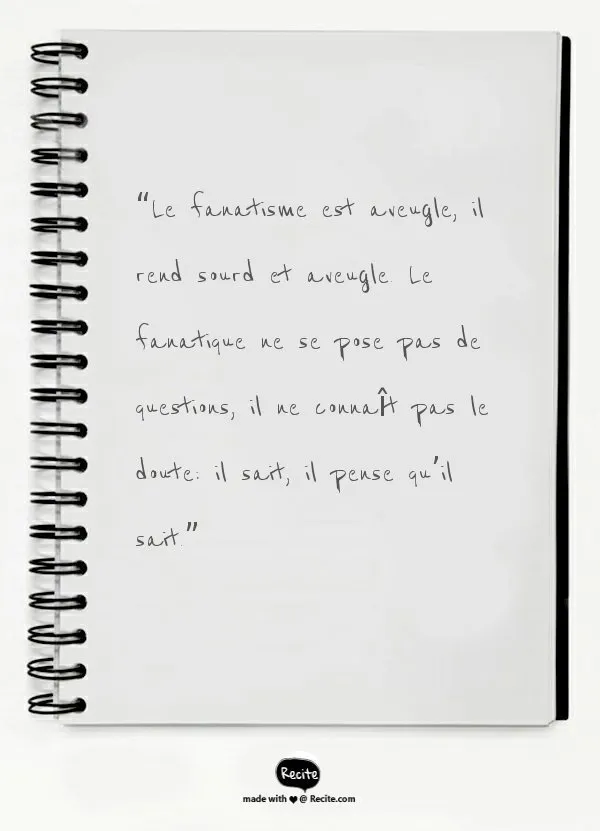 "Le fanatisme est aveugle, il
rend sourd et aveugle. Le
fanatique ne se pose pas de
questions, il ne connaît pas le
doute: il sait, il pense qu'il
sait."
Recite
made with ♥ @ Recite.com